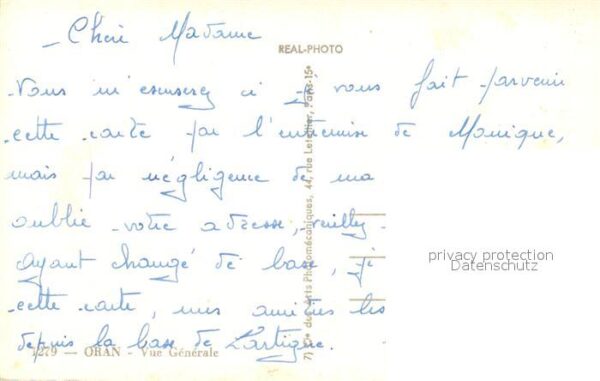 - Chère Madame
REAL-PHOTO
Vous m'excuserez si je vous fait parvenir
cette carte par l'entremise de Monique,
mais par négligence de ma
oublié votre adresse, veuillez
Ayant changé de base, j'
cette carte, mes amitiés les
depuis la base de Lartigue.
7279 — ORAN - Vue Générale
Cie des Arts Photomécaniques, 44, rue Letellier, Paris-15e
privacy protection
Datenschutz